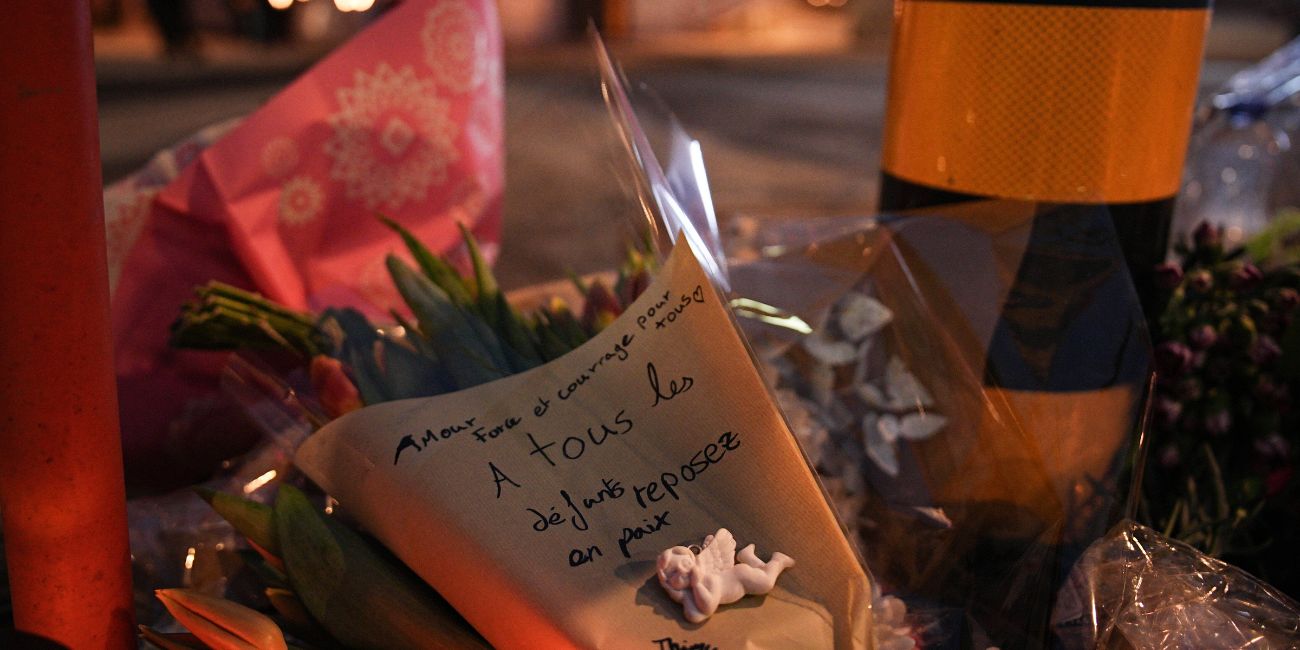 AMour Force et courrage pour
tous♡
A tous les
défunts reposez
en paix